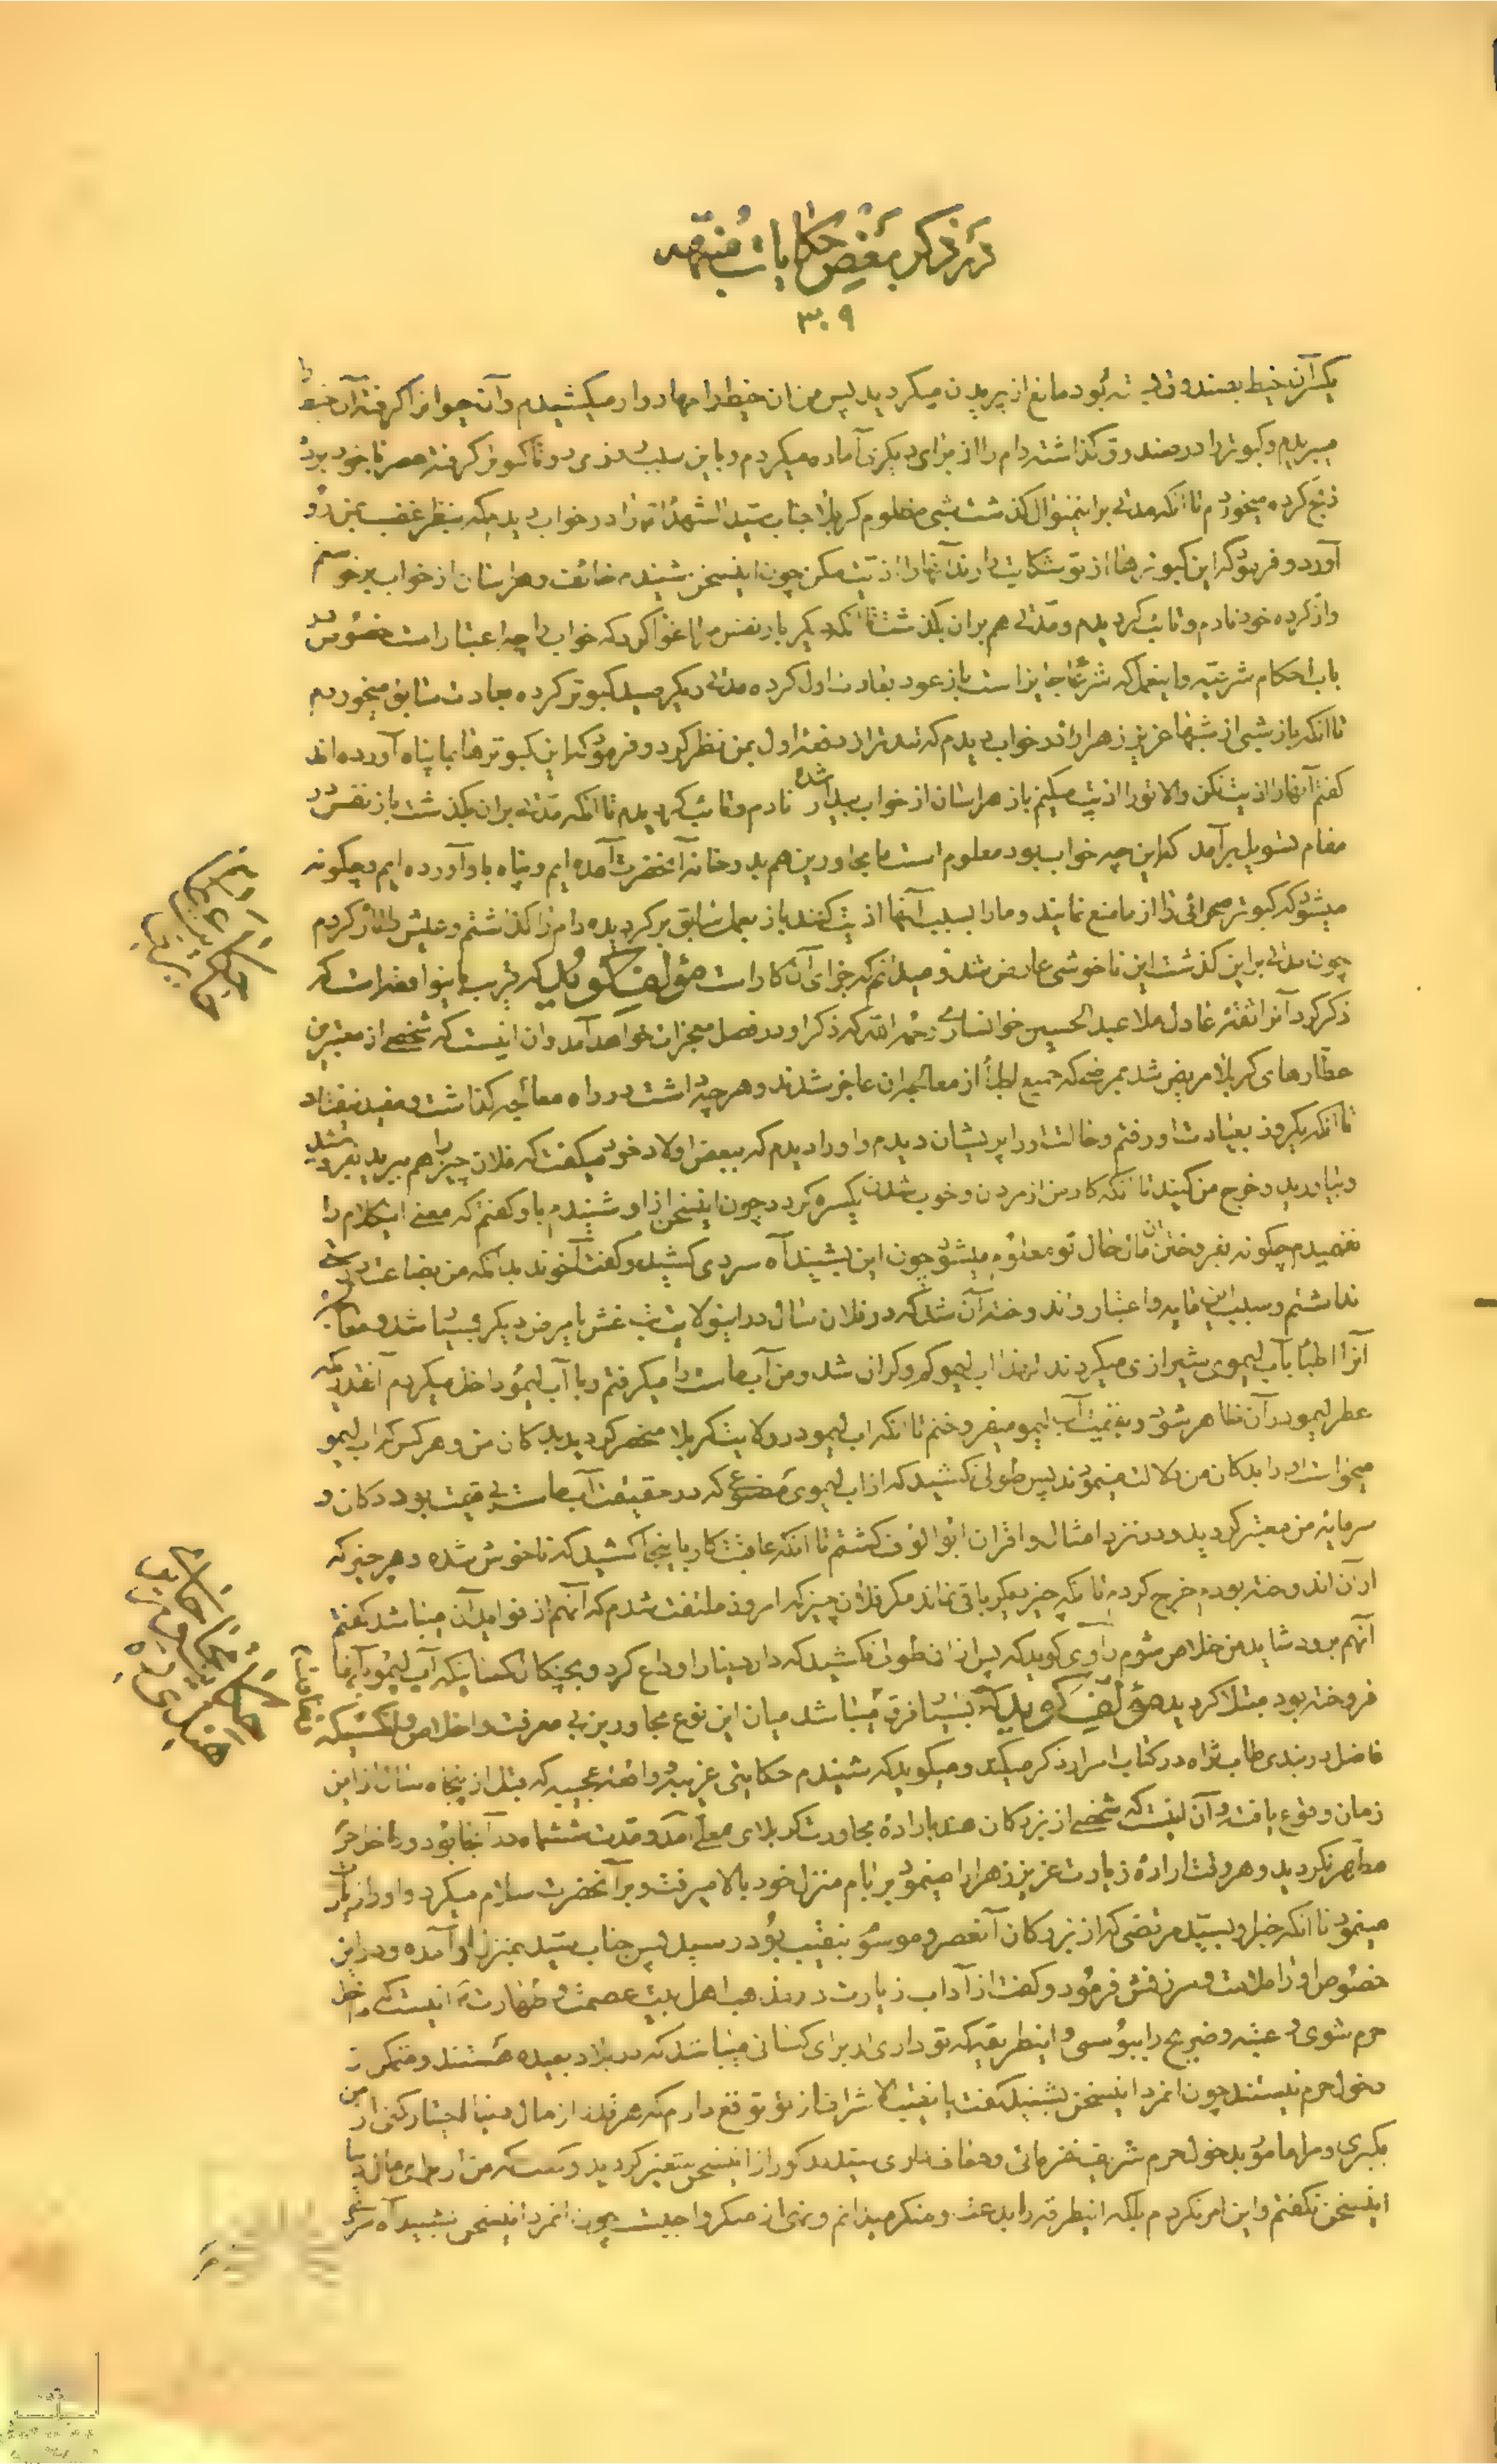 در ذکر بعض حکایات منبهه
۳۰۹
یکسرآن خیط بصندوق بسته بود مانع از پریدن میکردید پس من ان خیط را مهاروار میکشیدم و آن حیوانرا کرفته آن
میبریدم و کبوتر را در صندوق کذاشته دام را از برای دیکری آماده میکردم و باین سبب روزی دو تا کبوتر کرفته عصر با خود برده
ذبح کرده میخوردم تا انکه مدتی براینمنوال کذشت شبی مظلوم کربلا جناب سید الشهداء را در خواب دیدم که بنظر غضب بمن رو
آورد و فرمود که این کبوترها از تو شکایت دارند آنها را اذیت مکن چون اینسخن شنیدم خائف و هراسان از خواب برخواستم
و از کرده خود نادم و تائب کردیدم و مدتی هم بران بکذشت تا انکه دیکر بار نفس مرا اغوا کرد که خواب را چه اعتبار است خصوص در
باب احکام شرعیه و اینعمل که شرعا جایز است باز عود بعادت اول کرده مدتی دیکر صید کبوتر کرده بعادت سابق میخوردم
تا انکه باز شبی از شبها عزیز زهرا را در خواب دیدم که تندتر از دفعه اول بمن نظر کرد و فرمود که این کبوترها بما پناه آورده اند
کفتم آنها را اذیت نکن والا تو را اذیت میکنیم باز هراسان از خواب بیدار شده نادم و تائب کردیدم تا انکه مدتی بران بکذشت باز نفس در
مقام تسویل برآمد که این چه خواب بود معلوم است ما مجاورین هم بدر خانه آنحضرت آمده ایم و پناه باو آورده ایم و چکونه
میشود که کبوتر صحرائی را از ما منع نمایند و ما را بسبب آنها اذیت کنند باز بعمل سابق برکردیده دام را کذاشتم و عیش را اغاز کردم
چون مدتی براین کذشت این ناخوشی عارض شد و میدانم که جزای آن کار است مؤلف کوید که قریب باینواقعه است که
ذکر کرد آنرا ثقه عادل ملا عبد الحسین خوانساری رحمه الله که ذکر او در فصل معجزات خواهد آمد و ان اینست که شخصی از معتبرین
عطارهای کربلا مریض شد بمرضی که جمیع اطبا از معالجه ان عاجز شدند و هر چه داشت در راه معالجه کذاشت و مفید نیفتاد
تا انکه یکروز بعیادت او رفتم و حالت او را پریشان دیدم و او را دیدم که ببعض اولاد خود میکفت که فلان چیز را هم ببرید بفروشید
و بیاورید و خرج من کنید تا انکه کار من از مردن و خوب شدن یکسره کردد چون اینسخن از او شنیدم باو کفتم که معنی اینکلام را
نفهمیدم چکونه بفروختن ان مال حال تو معلوم میشود چون این بشنید آه سردی کشید و کفت آخوند بدانکه من بضاعت درستی
نداشتم و سبب این مایه و اعتبار و اندوخته آن شد که در فلان سال در اینولایت تب غش یا مرض دیکر بسیار شد و معالجه
آنرا اطبا بآب لیموی شیرازی میکردند لهذا اب لیمو کم و کران شد و من آب ماست را میکرفتم و با آب لیمو داخل میکردم آنقدریکه
عطر لیمو در آن ظاهر شود و بقیمت آب لیمو میفروختم تا انکه اب لیمو در ولایت کربلا منحصر کردید بدکان من و هر کس که اب لیمو
میخواست او را بدکان من دلالت مینمودند پس طولی نکشید که از اب لیموی مصنوع که در حقیقت آب ماست بی قیمت بود دکان و
سرمایه من معتبر کردید و در نزد امثال و اقران ابو الالوف کشتم تا انکه عاقبت کار باینجا کشید که ناخوش شده و هر چیز که
از آن اندوخته بودم خرج کردم تا انکه چیز دیکر باقی نماند مکر فلان چیز که امروز ملتفت شدم که آنهم از فواید آن میباشد کفتم
آنهم برود شاید من خلاص شوم راوی کوید که پس از ان طولی نکشید که دار دنیا را وداع کرد و
فروخته بود مبتلا کردید مؤلف کوید که بسیار فرق میباشد میان این نوع مجاورین بی معرفت و اخلاص و انکسیکه
فاضل دربندی طاب ثراه در کتاب اسرار ذکر میکند و میکوید که شنیدم حکایتی غریبه و واقعه عجیبه که قبل از پنجاه سال از این
زمان وقوع یافت و آن اینست که شخصی از بزرکان هند باراده مجاورت کربلای معلی آمد و مدت ششماه در آنجا بود و داخل حرم
مطهر نکردید و هر وقت اراده زیارت عزیز زهرا را مینمود بر بام منزل خود بالا میرفت و بر آنحضرت سلام میکرد و او را زیارت
مینمود تا انکه خبر او بسید مرتضی که از بزرکان آنعصر و موسوم بنقیب بود رسید پس جناب سید بمنزل او آمده و در این
خصوص او را ملامت و سرزنش فرمود و کفت از آداب زیارت در مذهب اهل بیت عصمت و طهارت اینست که داخل
حرم شوی و عتبه و ضریح را ببوسی و اینطریقه که تو داری از برای کسانی میباشد که در بلاد بعیده هستند و متمکن از
دخول حرم نیستند چون انمرد اینسخن بشنید کفت یا نقیب الاشراف از تو توقع دارم که هر قدر از مال دنیا اختیار کنی از من
بکیری و مرا مامور بدخول حرم شریف نفرمائی و معاف داری سید مذکور از اینسخن متغیر کردید و کفت که من از برای مال دنیا
اینسخن نکفتم و این امر نکردم بلکه اینطریقه را بدعت و منکر میدانم و نهی از منکر واجبست چون انمرد اینسخن بشنید آه سرد